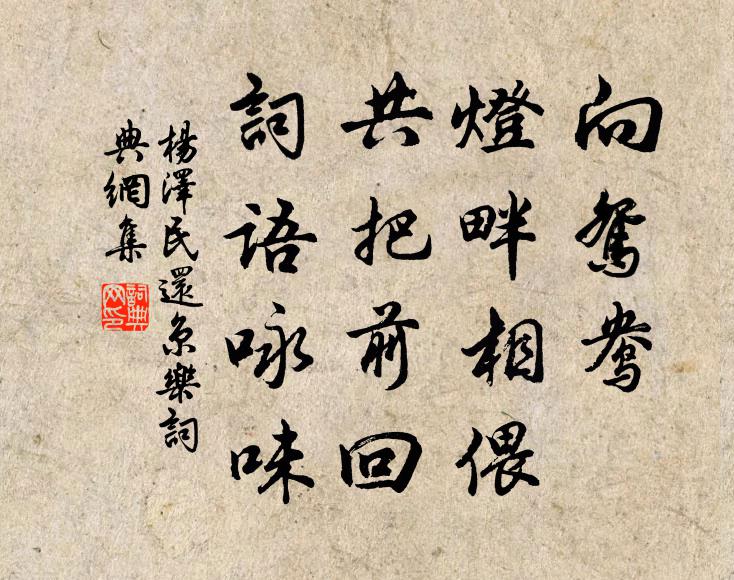 向鴛鴦
燈畔相偎
共把前回
詞語咏味
楊澤民還京樂詞
典網集
詞典網印